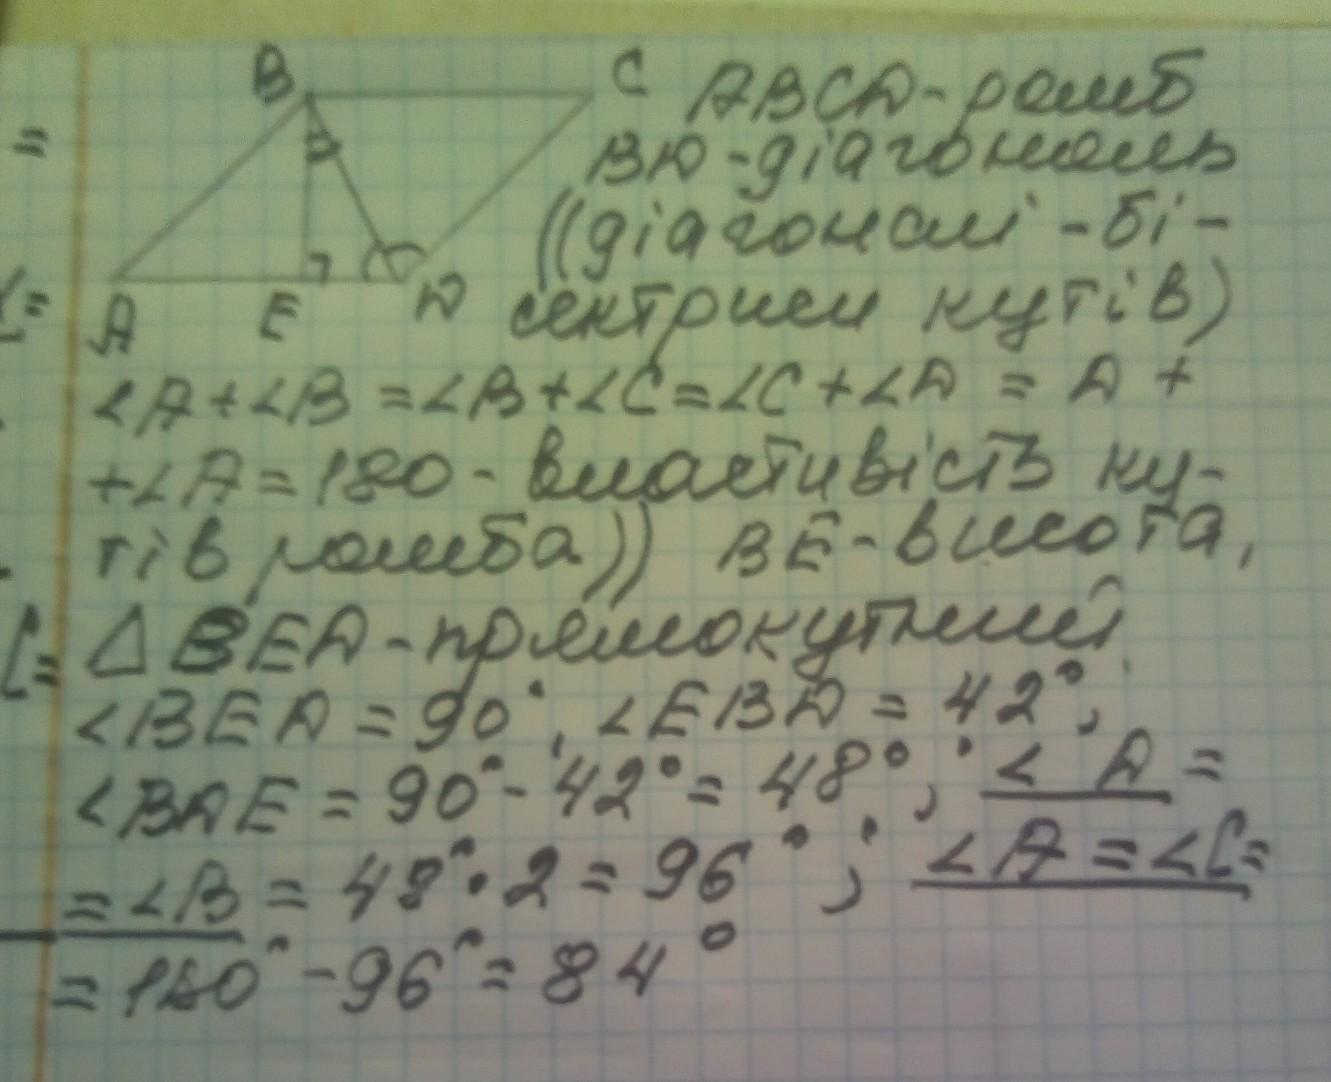 =
B
C
ABCD-ромб
BD-діагональ
((діагоналі-бі-
A
E
D
сектриси кутів)
∠A+∠B=∠B+∠C=∠C+∠D=D+
+∠A=180-властивість ку-
тів ромба)) BE-висота,
△BED-прямокутний
∠BED=90°, ∠EBD=42°;
∠BDE=90°-42°=48°; ∠D=
=∠B=48°·2=96°; ∠A=∠C=
=180°-96°=84°